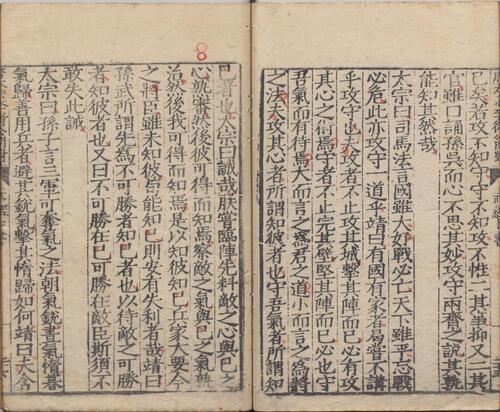 已矣若攻不知守守不知攻不惟二其事抑又二其
官雖口誦孫吳而心不思其妙攻守兩齊之說其
能知其然哉
太宗曰司馬法言國雖大好戰必亡天下雖平忘戰
必危此亦攻守一道乎靖曰有國有家者曷嘗不講
乎攻守也夫攻者不止攻其城擊其陣而已必有攻
其心之術焉守者不止完其壁堅其陣而已必也守
吾氣而有待焉大而言之爲君之道小而言之爲將
之法夫攻其心者所謂知彼者也守吾氣者所謂知
8
己者也太宗曰誠哉朕嘗臨陣先料敵之心與己之
心孰審然後彼可得而知焉察敵之氣與己之氣孰
治然後我可得而知焉是以知彼知己兵家大要今
之將臣雖未知彼苟能知己則安有失利者哉靖曰
孫武所謂先爲不可勝者知己者也以待敵之可勝
者知彼者也又曰不可勝在己可勝在敵臣斯須不
敢失此誡
太宗曰孫子言三軍可奪氣之法朝氣銳晝氣惰暮
氣歸善用兵者避其銳氣擊其惰歸如何靖曰夫含